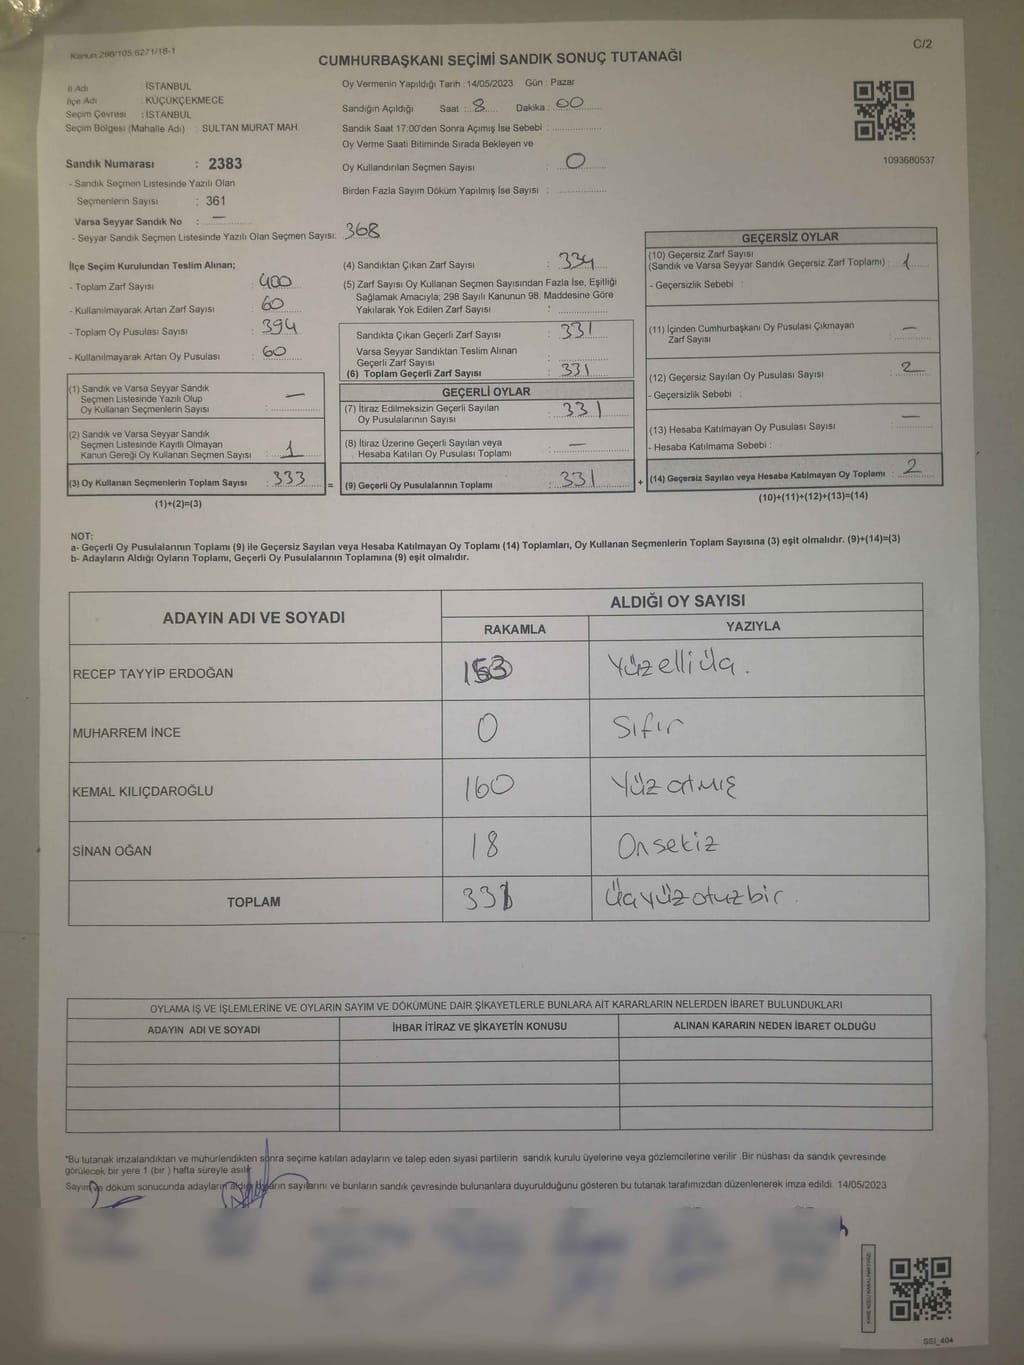 Kanun:298/105,6271/18-1
C/2
CUMHURBAŞKANI SEÇİMİ SANDIK SONUÇ TUTANAĞI
İl Adı : İSTANBUL
İlçe Adı : KÜÇÜKÇEKMECE
Seçim Çevresi : İSTANBUL
Seçim Bölgesi (Mahalle Adı) : SULTAN MURAT MAH
Sandık Numarası : 2383
- Sandık Seçmen Listesinde Yazılı Olan
Seçmenlerin Sayısı : 361
Varsa Seyyar Sandık No : —
- Seyyar Sandık Seçmen Listesinde Yazılı Olan Seçmen Sayısı: 368
Oy Vermenin Yapıldığı Tarih : 14/05/2023 Gün : Pazar
Sandığın Açıldığı Saat : 8 Dakika : 00
Sandık Saat 17:00'den Sonra Açımış İse Sebebi :
Oy Verme Saati Bitiminde Sırada Bekleyen ve
Oy Kullandırılan Seçmen Sayısı : 0
Birden Fazla Sayım Döküm Yapılmış İse Sayısı :
1093680537
İlçe Seçim Kurulundan Teslim Alınan;
- Toplam Zarf Sayısı : 400
- Kullanılmayarak Artan Zarf Sayısı : 60
- Toplam Oy Pusulası Sayısı : 394
- Kullanılmayarak Artan Oy Pusulası : 60
(1) Sandık ve Varsa Seyyar Sandık
Seçmen Listesinde Yazılı Olup
Oy Kullanan Seçmenlerin Sayısı : —
(2) Sandık ve Varsa Seyyar Sandık
Seçmen Listesinde Kayıtlı Olmayan
Kanun Gereği Oy Kullanan Seçmen Sayısı : 1
(3) Oy Kullanan Seçmenlerin Toplam Sayısı : 333 =
(1)+(2)=(3)
(4) Sandıktan Çıkan Zarf Sayısı : 334
(5) Zarf Sayısı Oy Kullanan Seçmen Sayısından Fazla İse, Eşitliği
Sağlamak Amacıyla; 298 Sayılı Kanunun 98. Maddesine Göre
Yakılarak Yok Edilen Zarf Sayısı :
Sandıkta Çıkan Geçerli Zarf Sayısı : 331
Varsa Seyyar Sandıktan Teslim Alınan
Geçerli Zarf Sayısı :
(6) Toplam Geçerli Zarf Sayısı : 331
GEÇERLİ OYLAR
(7) İtiraz Edilmeksizin Geçerli Sayılan
Oy Pusulalarının Sayısı : 331
(8) İtiraz Üzerine Geçerli Sayılan veya
Hesaba Katılan Oy Pusulası Toplamı : —
(9) Geçerli Oy Pusulalarının Toplamı : 331 +
GEÇERSİZ OYLAR
(10) Geçersiz Zarf Sayısı
(Sandık ve Varsa Seyyar Sandık Geçersiz Zarf Toplamı) : 1
- Geçersizlik Sebebi :
(11) İçinden Cumhurbaşkanı Oy Pusulası Çıkmayan
Zarf Sayısı : —
(12) Geçersiz Sayılan Oy Pusulası Sayısı : 2
- Geçersizlik Sebebi :
(13) Hesaba Katılmayan Oy Pusulası Sayısı : —
- Hesaba Katılmama Sebebi :
(14) Geçersiz Sayılan veya Hesaba Katılmayan Oy Toplamı : 2
(10)+(11)+(12)+(13)=(14)
NOT:
a- Geçerli Oy Pusulalarının Toplamı (9) ile Geçersiz Sayılan veya Hesaba Katılmayan Oy Toplamı (14) Toplamları, Oy Kullanan Seçmenlerin Toplam Sayısına (3) eşit olmalıdır. (9)+(14)=(3)
b- Adayların Aldığı Oyların Toplamı, Geçerli Oy Pusulalarının Toplamına (9) eşit olmalıdır.
ADAYIN ADI VE SOYADI
ALDIĞI OY SAYISI
RAKAMLA YAZIYLA
RECEP TAYYİP ERDOĞAN 153 Yüzelliüç.
MUHARREM İNCE 0 Sıfır
KEMAL KILIÇDAROĞLU 160 Yüzatmış
SİNAN OĞAN 18 Onsekiz
TOPLAM 331 Üçyüzotuzbir.
OYLAMA İŞ VE İŞLEMLERİNE VE OYLARIN SAYIM VE DÖKÜMÜNE DAİR ŞİKAYETLERLE BUNLARA AİT KARARLARIN NELERDEN İBARET BULUNDUKLARI
ADAYIN ADI VE SOYADI İHBAR İTİRAZ VE ŞİKAYETİN KONUSU ALINAN KARARIN NEDEN İBARET OLDUĞU
*Bu tutanak imzalandıktan ve mühürlendikten sonra seçime katılan adayların ve talep eden siyasi partilerin sandık kurulu üyelerine veya gözlemcilerine verilir .Bir nüshası da sandık çevresinde
görülecek bir yere 1 (bir ) hafta süreyle asılır.
Sayım ve döküm sonucunda adayların aldığı oyların sayılarını ve bunların sandık çevresinde bulunanlara duyurulduğunu gösteren bu tutanak tarafımızdan düzenlenerek imza edildi. 14/05/2023
SEI_404